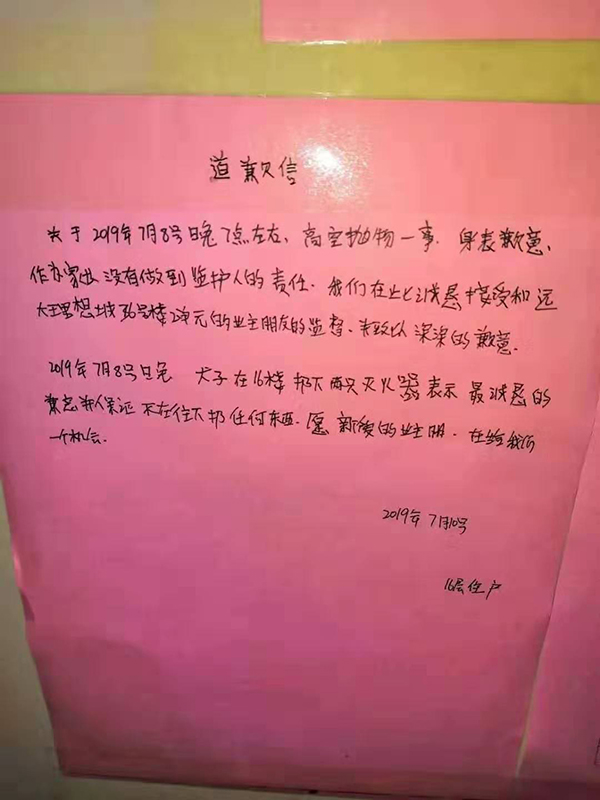 道歉信
关于2019年7月8号晚7点左右、高空抛物一事. 身表歉意、
作为家长没有做到监护人的责任. 我们在此诚恳接受和远
大理想城36号楼2单元的业主朋友的监督、来致以深深的歉意.
2019年7月8号晚 犬子在16楼扔下两只灭火器表示最诚恳的
兼忠并保证 不在往下扔任何东西. 愿 的业主朋. 在给我们
一个机会.
2019年7月10号
16层住户